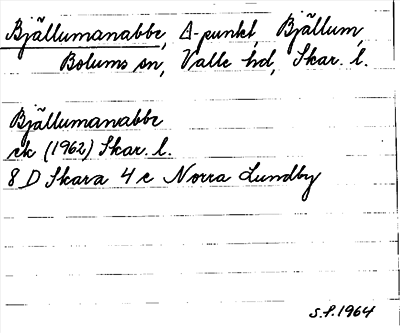 Bjällumanabbe, Δ-punkt, Bjällum,
Bolums sn, Valle hd, Skar. l.
Bjällumanabbe
ek (1962) Skar. l.
8 D Skara 4 c Norra Lundby
S.f. 1964